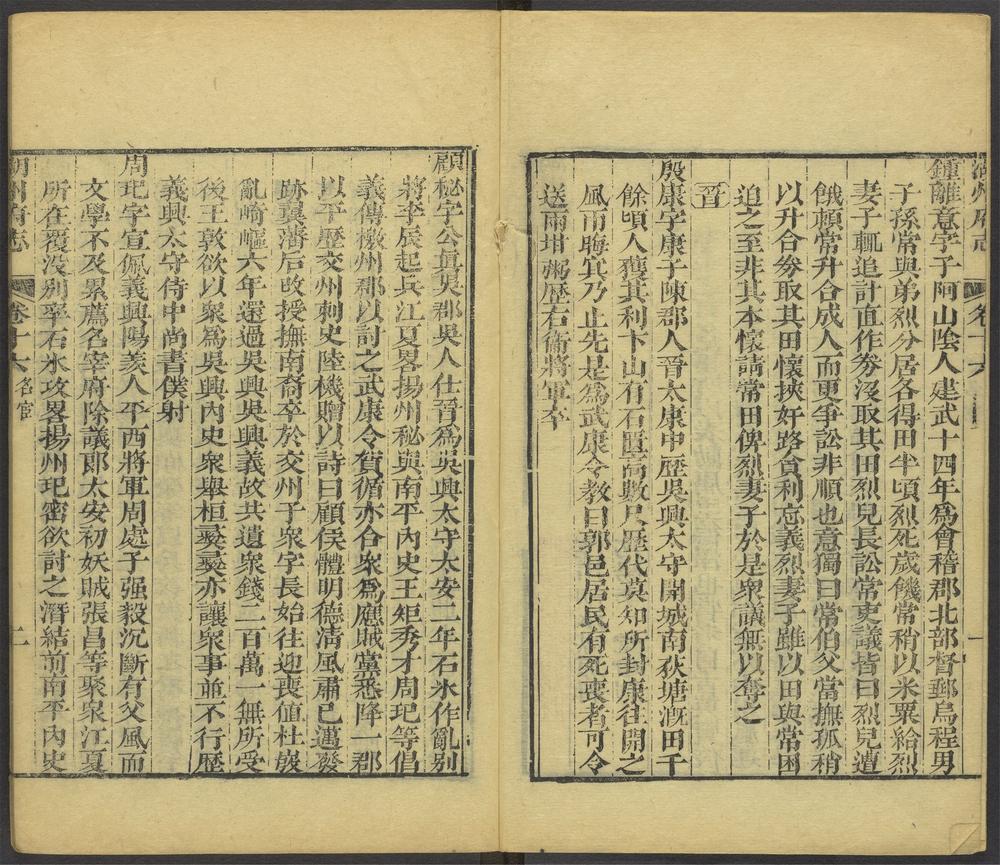 湖州府志 卷十六 一
鍾離意字子阿山陰人建武十四年爲會稽郡北部督郵烏程男
子孫常與弟烈分居各得田半頃烈死歲饑常稍以米粟給烈
妻子輒追計直作券沒取其田烈兒長訟常吏議皆曰烈兒遭
餓賴常升合成人而更爭訟非順也意獨曰常伯父當撫孤稍
以升合券取其田懷挾奸路貪利忘義烈妻子雖以田與常困
迫之至非其本懷請常田俾烈妻子於是衆議無以奪之
晉
殷康字康子陳郡人晉太康中歷吳興太守開城南荻塘溉田千
餘頃人獲其利下山有石匱高數尺歷代莫知所封康往開之
風雨晦冥乃止先是爲武康令教曰郭邑居民有死喪者可令
送雨坩粥歷右衛將軍卒
顧秘字公眞吳郡吳人仕晉爲吳興太守太安二年石氷作亂別
將李辰起兵江夏畧揚州秘與南平內史王矩秀才周玘等倡
義傳檄州郡以討之武康令賀循亦合衆爲應賊黨悉降一郡
以平歷交州刺史陸機贈以詩曰顧侯體明德淸風肅已邁發
跡翼藩后改授撫南裔卒於交州子衆字長始往迎喪値杜弢
亂崎嶇六年還過吳興吳興義故共遺衆錢二百萬一無所受
後王敦欲以衆爲吳興內史衆舉桓彝彝亦讓衆事並不行歷
義興太守侍中尚書僕射
周玘字宣佩義興陽羨人平西將軍周處子强毅沉斷有父風而
文學不及累薦名宰府除議郎太安初妖賊張昌等聚衆江夏
所在覆沒別率石氷攻畧揚州玘密欲討之潛結前南平內史
湖州府志 卷十六 名宦 二